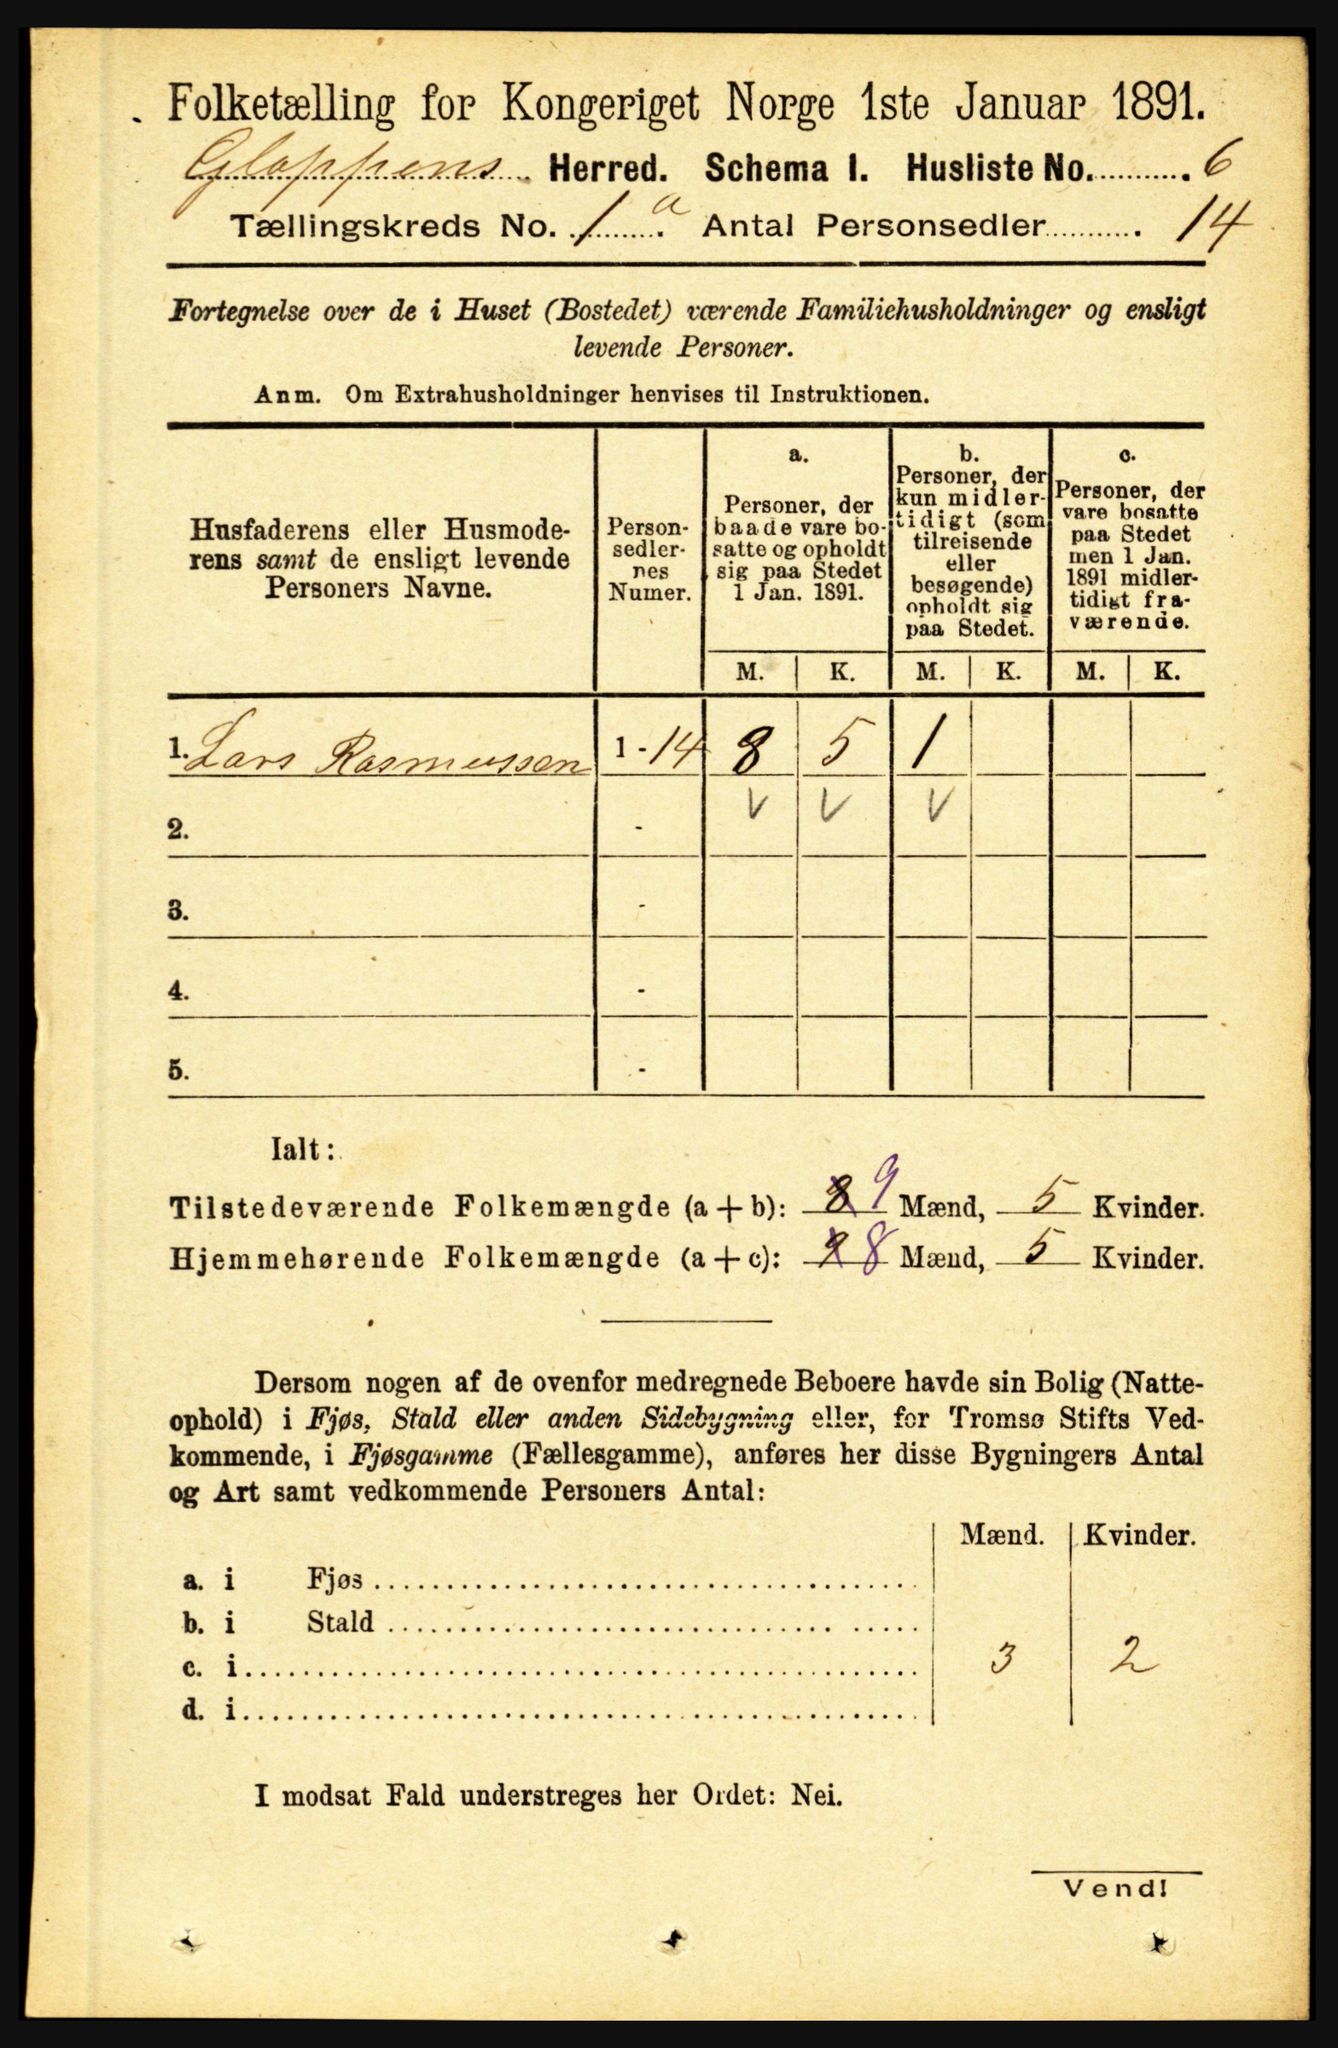 Folketælling for Kongeriget Norge 1ste Januar 1891.
Gloppens Herred. Schema I. Husliste No. 6
Tællingskreds No. 1 a. Antal Personsedler 14
Fortegnelse over de i Huset (Bostedet) værende Familiehusholdninger og ensligt
levende Personer.
Anm. Om Extrahusholdninger henvises til Instruktionen.
Husfaderens eller Husmode-
rens samt de ensligt levende
Personers Navne.
Person-
sedler-
nes
Numer.
a.
Personer, der
baade vare bo-
satte og opholdt
sig paa Stedet
1 Jan. 1891.
b.
Personer, der
kun midler-
tidigt (som
tilreisende
eller
besøgende)
opholdt sig
paa Stedet.
c.
Personer, der
vare bosatte
paa Stedet
men 1 Jan.
1891 midler-
tidigt fra-
værende.
M. K. M. K. M. K.
1. Lars Rasmussen 1 - 14 8 5 1
V V V
2. -
3. -
4. -
5. -
Ialt:
Tilstedeværende Folkemængde (a + b): 8 9 Mænd, 5 Kvinder.
Hjemmehørende Folkemængde (a + c): 9 8 Mænd, 5 Kvinder.
Dersom nogen af de ovenfor medregnede Beboere havde sin Bolig (Natte-
ophold) i Fjøs, Stald eller anden Sidebygning eller, for Tromsø Stifts Ved-
kommende, i Fjøsgamme (Fællesgamme), anføres her disse Bygningers Antal
og Art samt vedkommende Personers Antal:
Mænd. Kvinder.
a. i Fjøs
b. i Stald
c. i 3 2
d. i
I modsat Fald understreges her Ordet: Nei.
Vend!